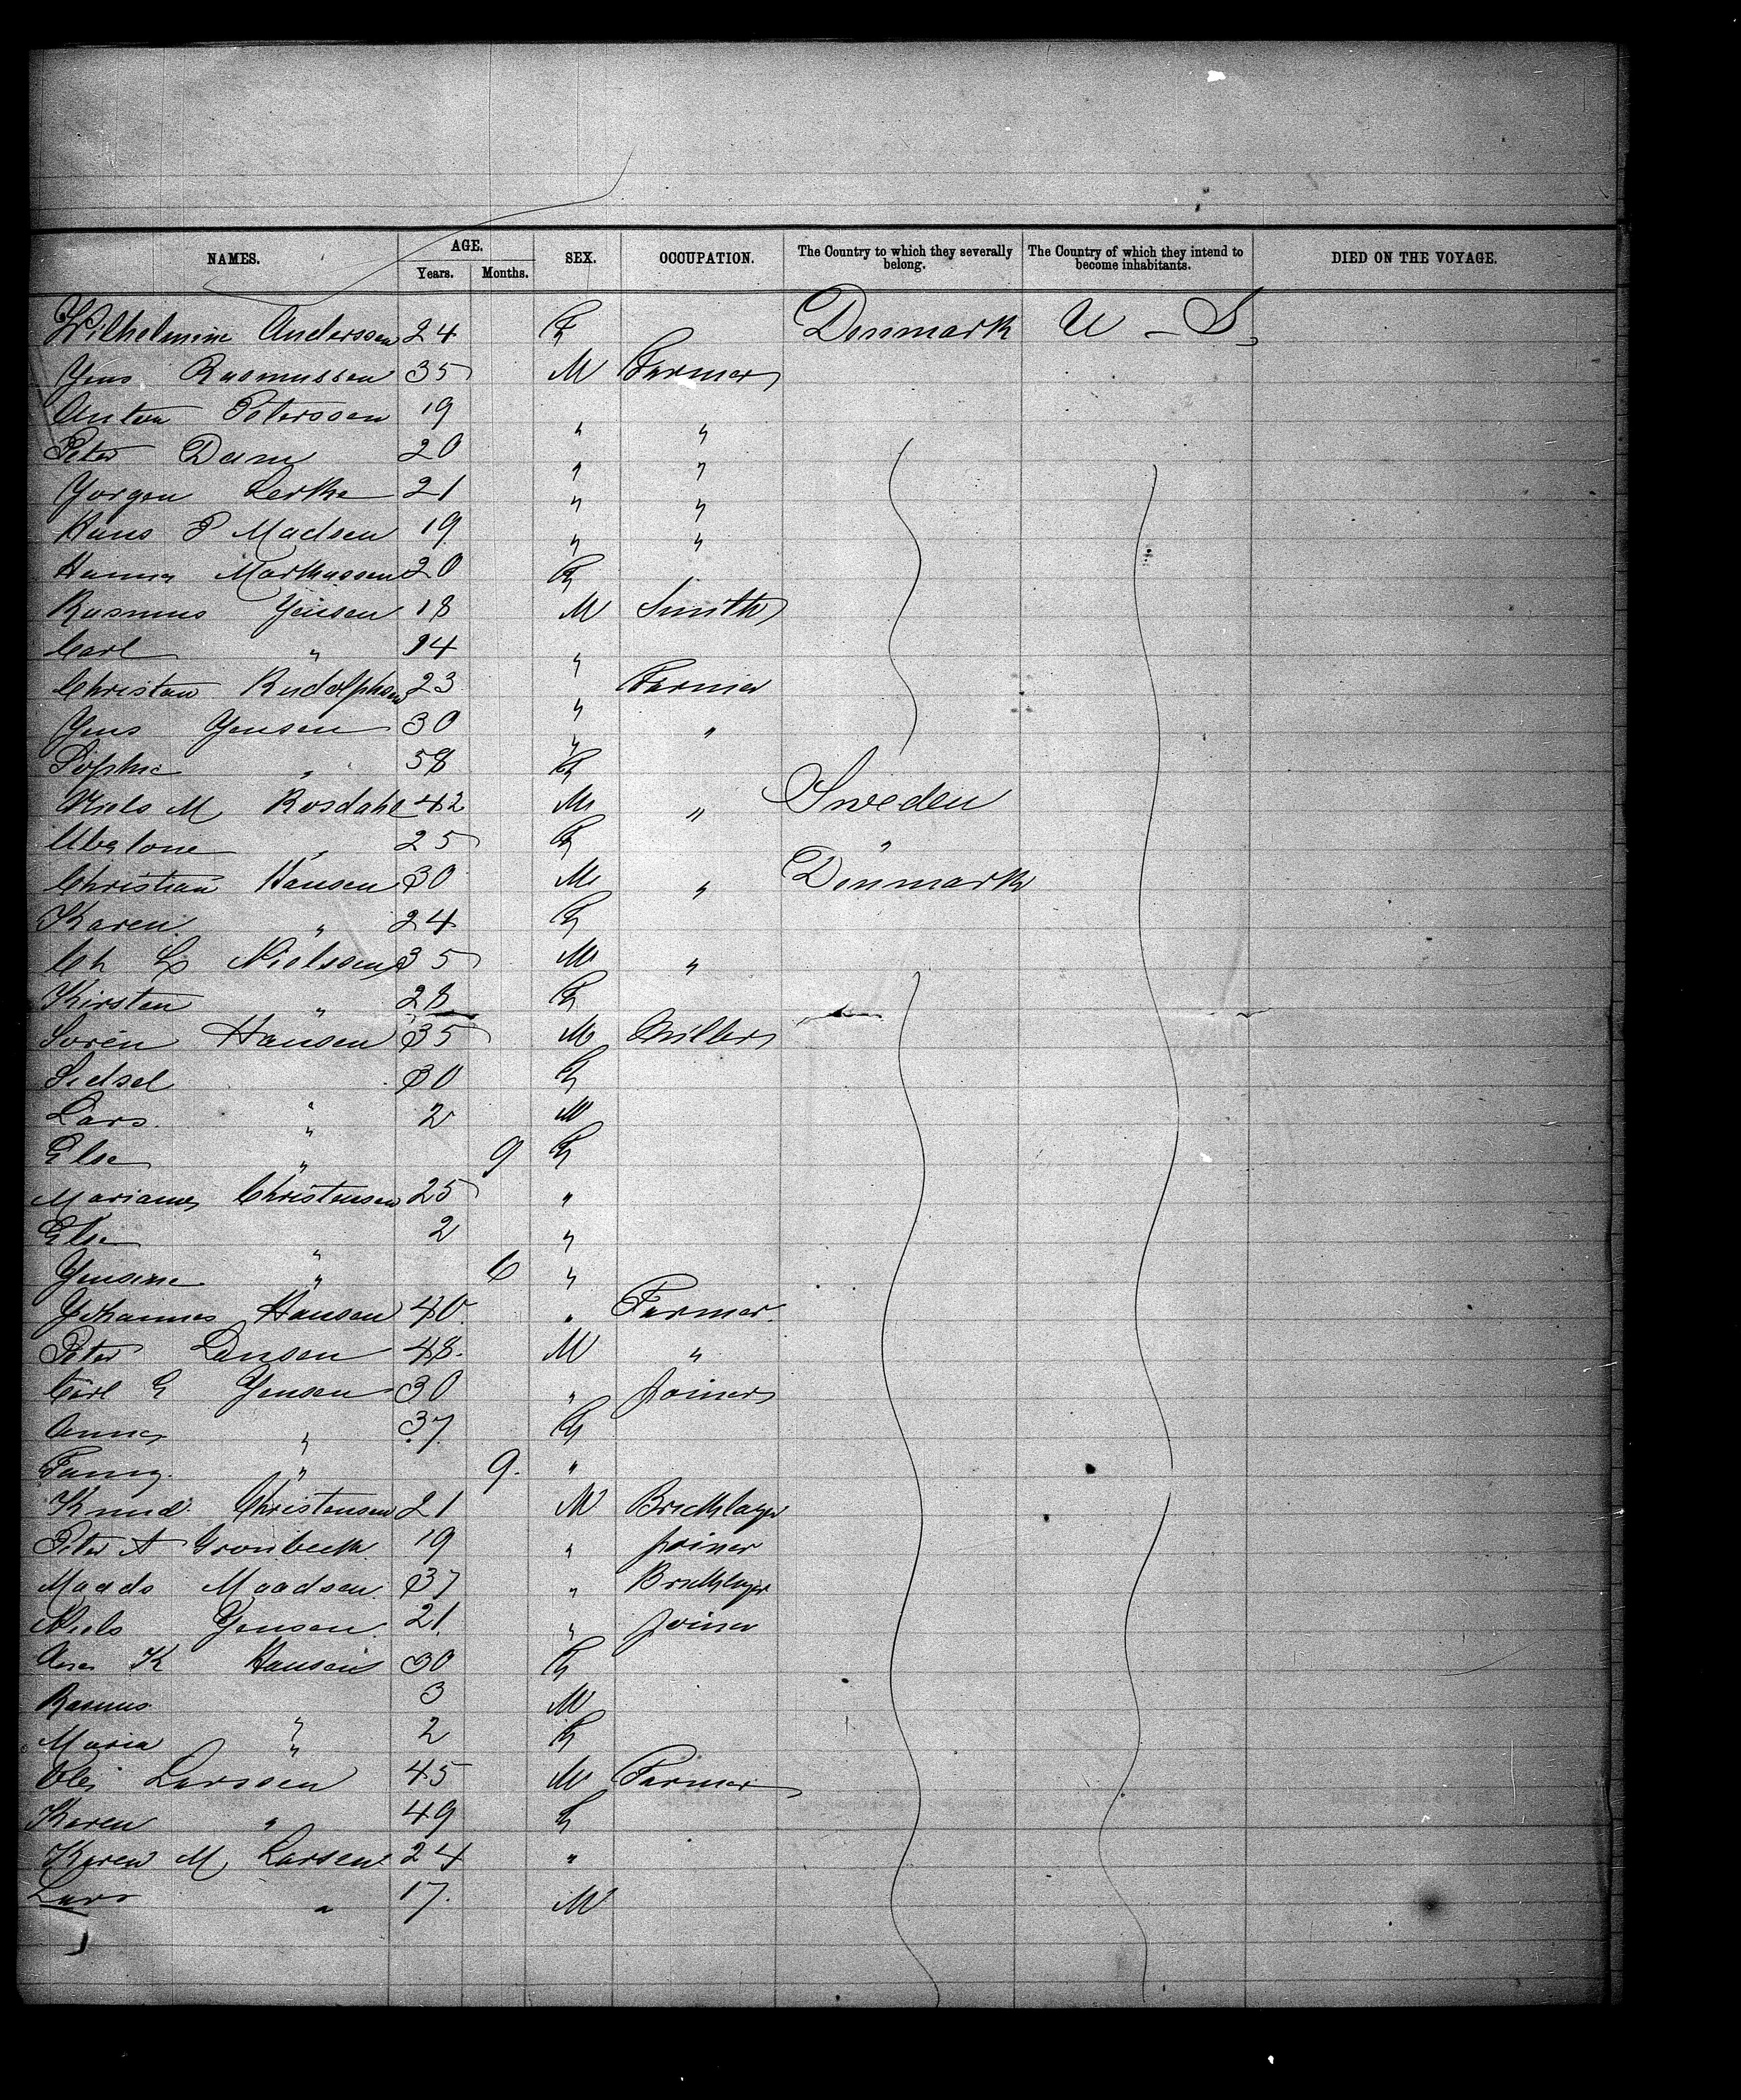 NAMES. AGE. SEX. OCCUPATION. The Country to which they severally belong. The Country of which they intend to become inhabitants. DIED ON THE VOYAGE.
Years. Months.
Wilhelmine Anderssen 24 F Denmark U - S
Yens Rasmussen 35 M Farmer
Anton Peterssen 19 " "
Peter Dam 20 " "
Yorgen Lerke 21 " "
Hans P Madsen 19 " "
Hanna Markussen 20 F
Rasmus Yensen 18 M Smith
Carl " 14 "
Christian Rudolphsen 23 " Farmer
Yens Yensen 30 " "
Sophie " 58 F
Niels M Rosdahl 42 M " Sweden
" 25 F "
Christian Hansen 30 M " Denmark
Karen " 24 F
Ch Nielssen 35 M "
Kirsten " 28 F
Soren Hansen 35 M Miller
Sidsel " 30 F
Lars " 2 M
Else " 9 F
Mariane Christensen 25 "
Else " 2 "
Yensine " 6 "
Yohannes Hansen 40 " Farmer.
Peter Lansen 48 M "
Carl E Yensen 30 " Joiner
Anna " 37 F
Fanny " 9 "
Knud Christensen 21 M Bricklayer
Peter A Gronbeck 19 " Joiner
Maads Maadsen 37 " Bricklayer
Niels Yensen 21 " Joiner
Ana K Hansen 30 F
Rasmus " 3 M
Maria " 2 F
Ole Larssen 45 M Farmer
Karen " 49 F
Karen M Larsen 24 "
Lars " 17 M